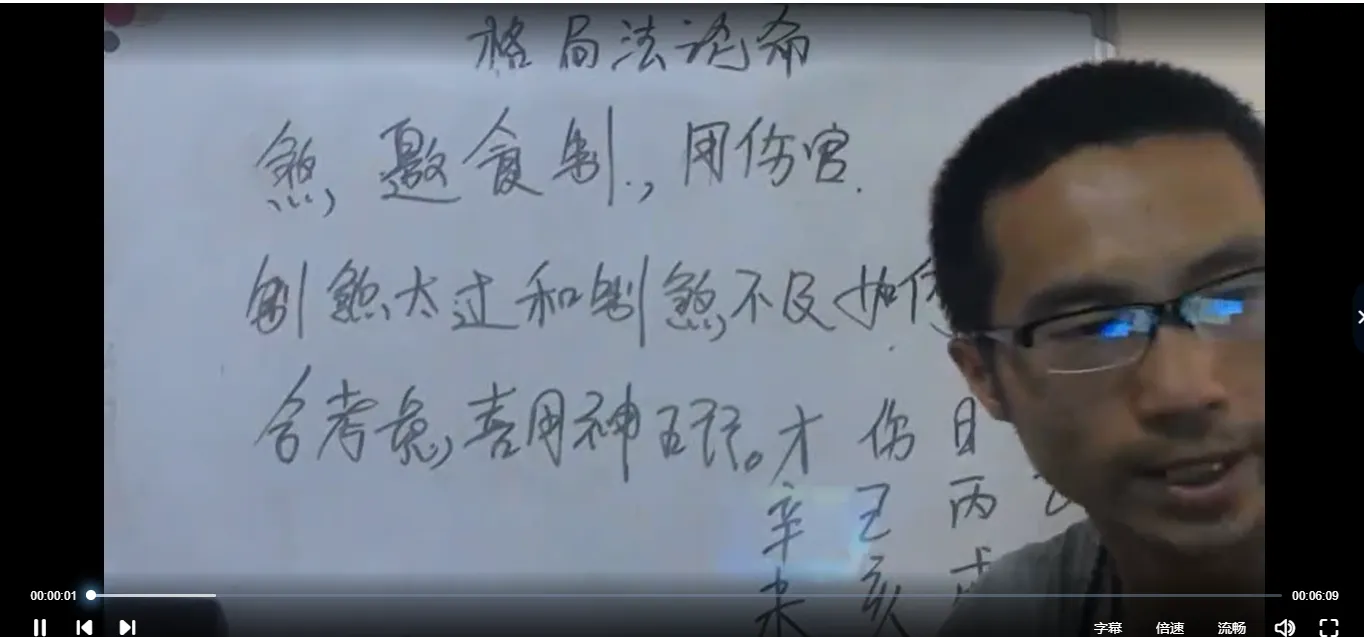 格局法论命
煞,邀食制.,用伤官.
制煞太过和制煞不及如何
合考虑,喜用神五行。才 伤 日
辛 己 丙
未 亥 戌
00:00:01
00:06:09
字幕 倍速 流畅